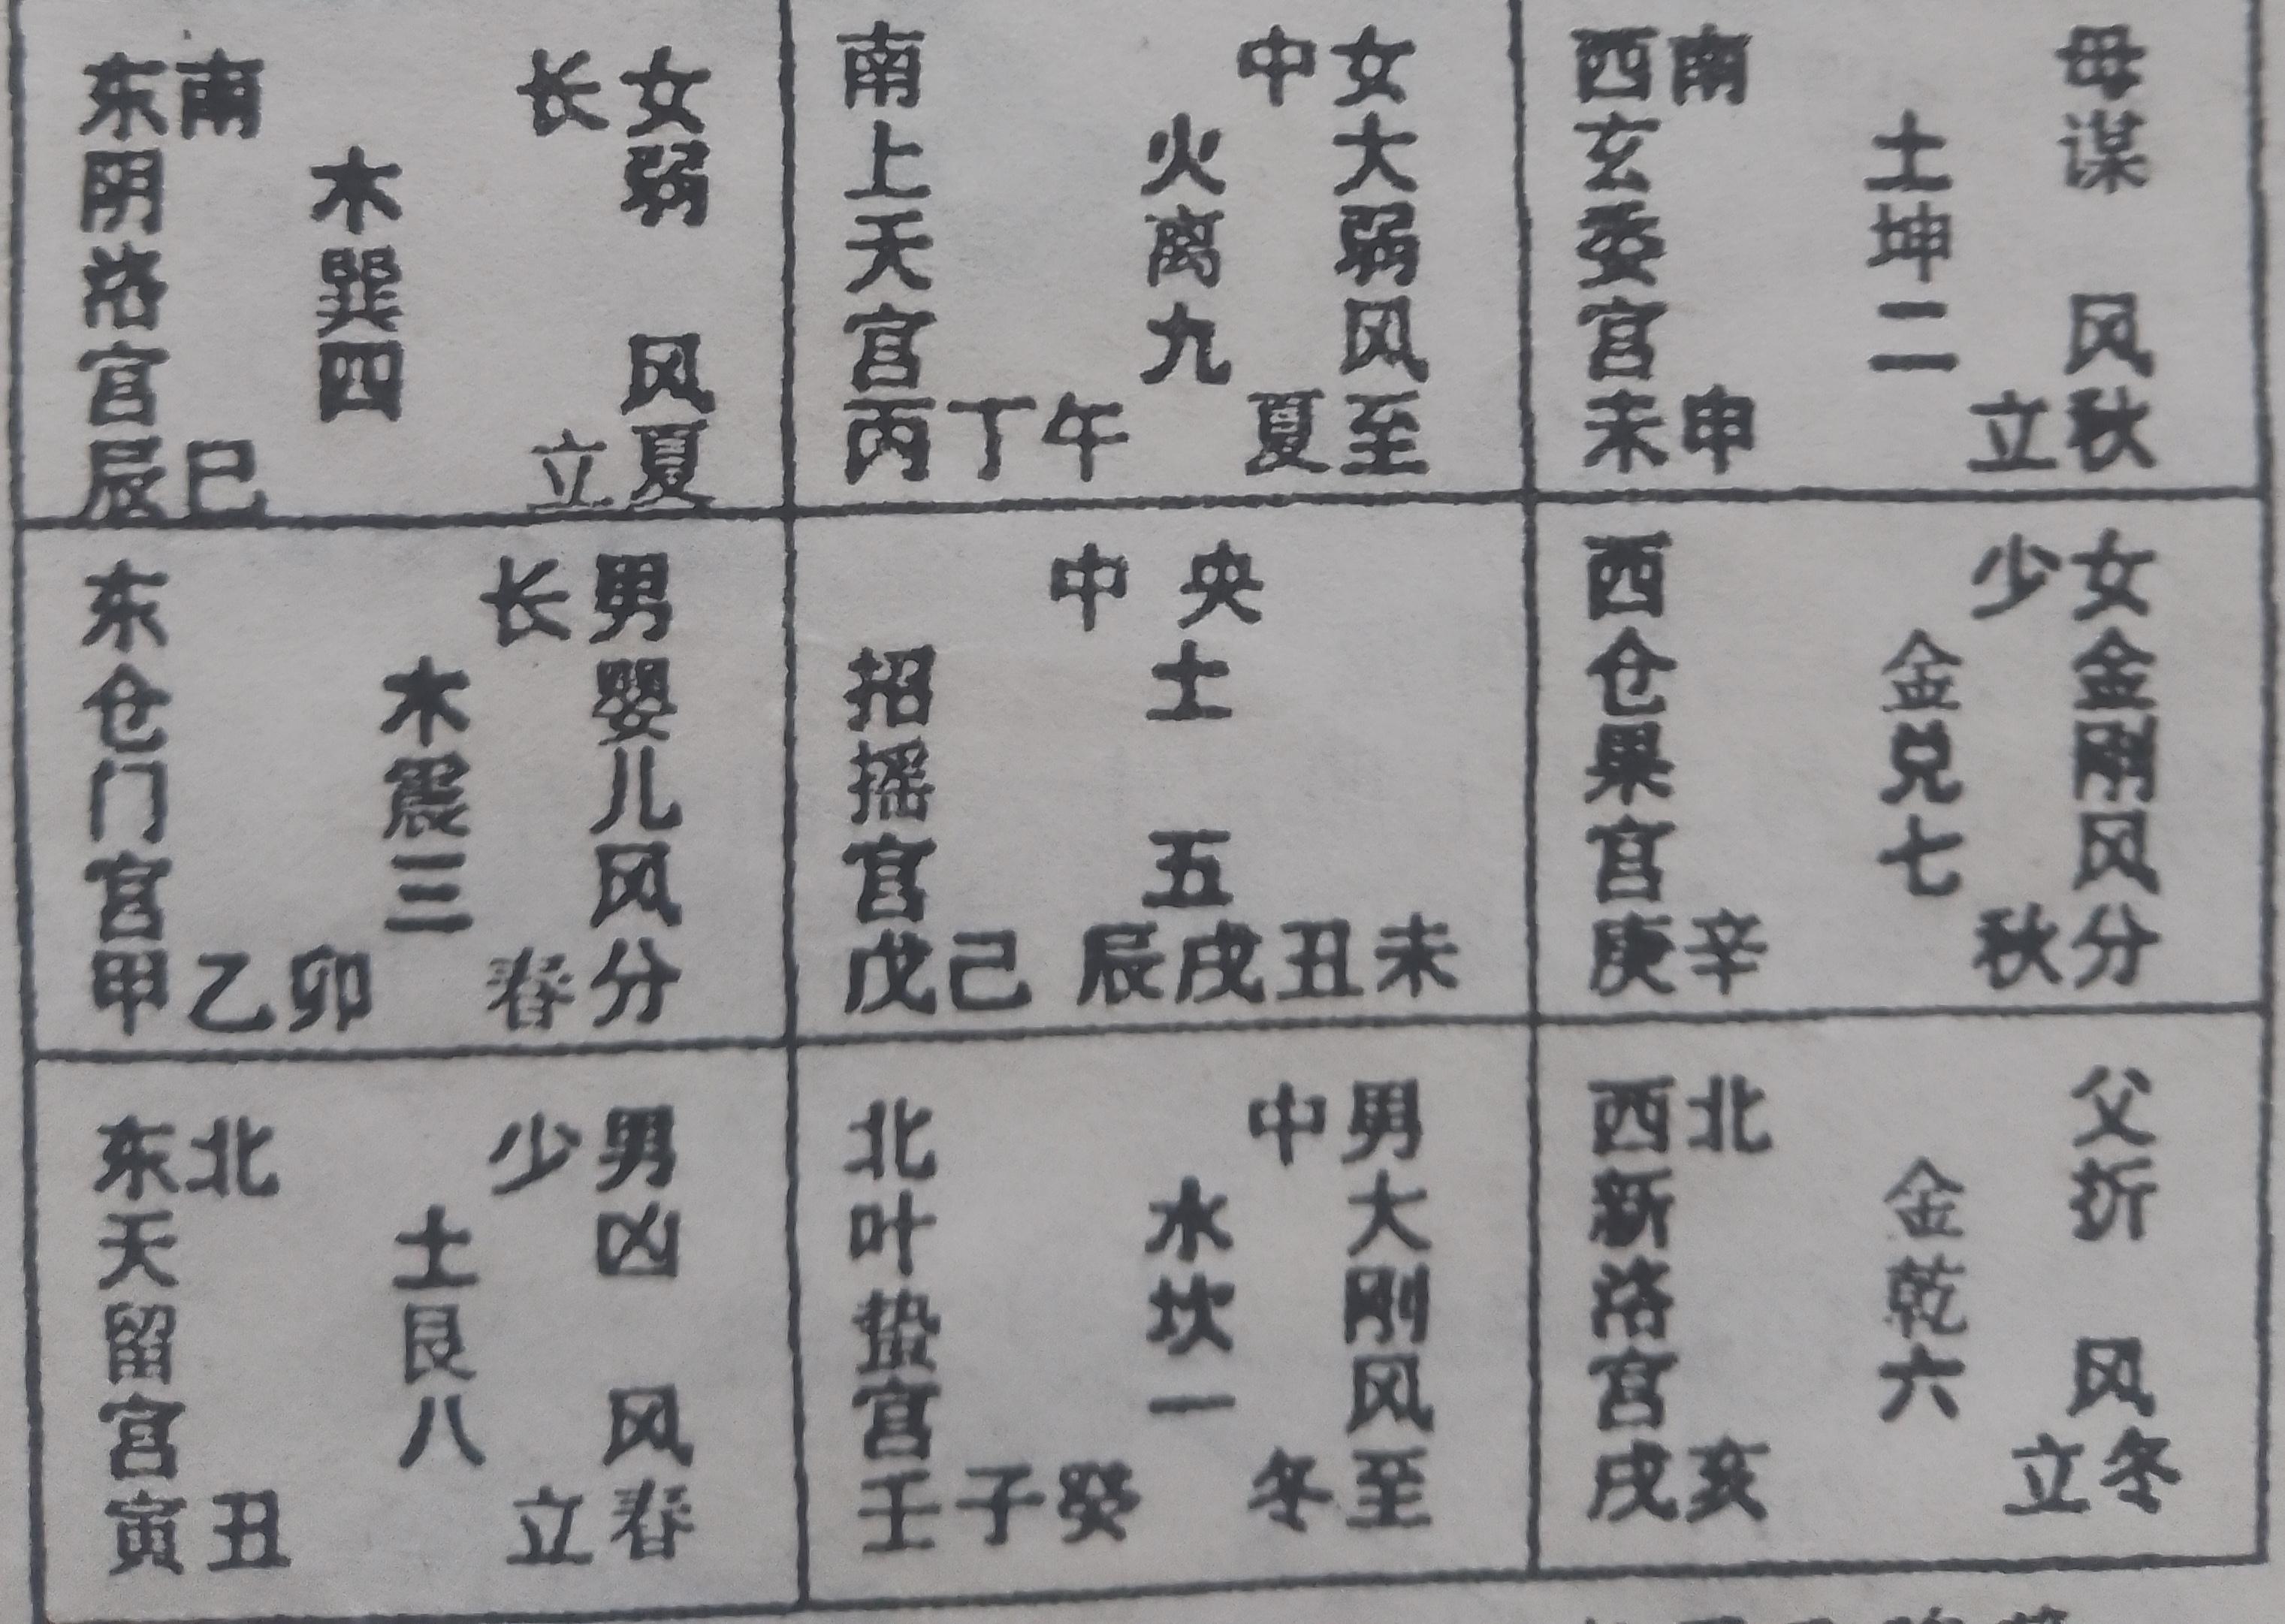 东南 长女
阴洛宫 木巽四 弱风
辰巳 立夏
南 中女
上天宫 火离九 大弱风
丙丁午 夏至
西南 母
玄委宫 土坤二 谋风
未申 立秋
东 长男
仓门宫 木震三 婴儿风
甲乙卯 春分
中央
招摇宫 土五
戊己 辰戌丑未
西 少女
仓果宫 金兑七 金刚风
庚辛 秋分
东北 少男
天留宫 土艮八 凶风
寅丑 立春
北 中男
叶蛰宫 水坎一 大刚风
壬子癸 冬至
西北 父
新洛宫 金乾六 折风
戌亥 立冬